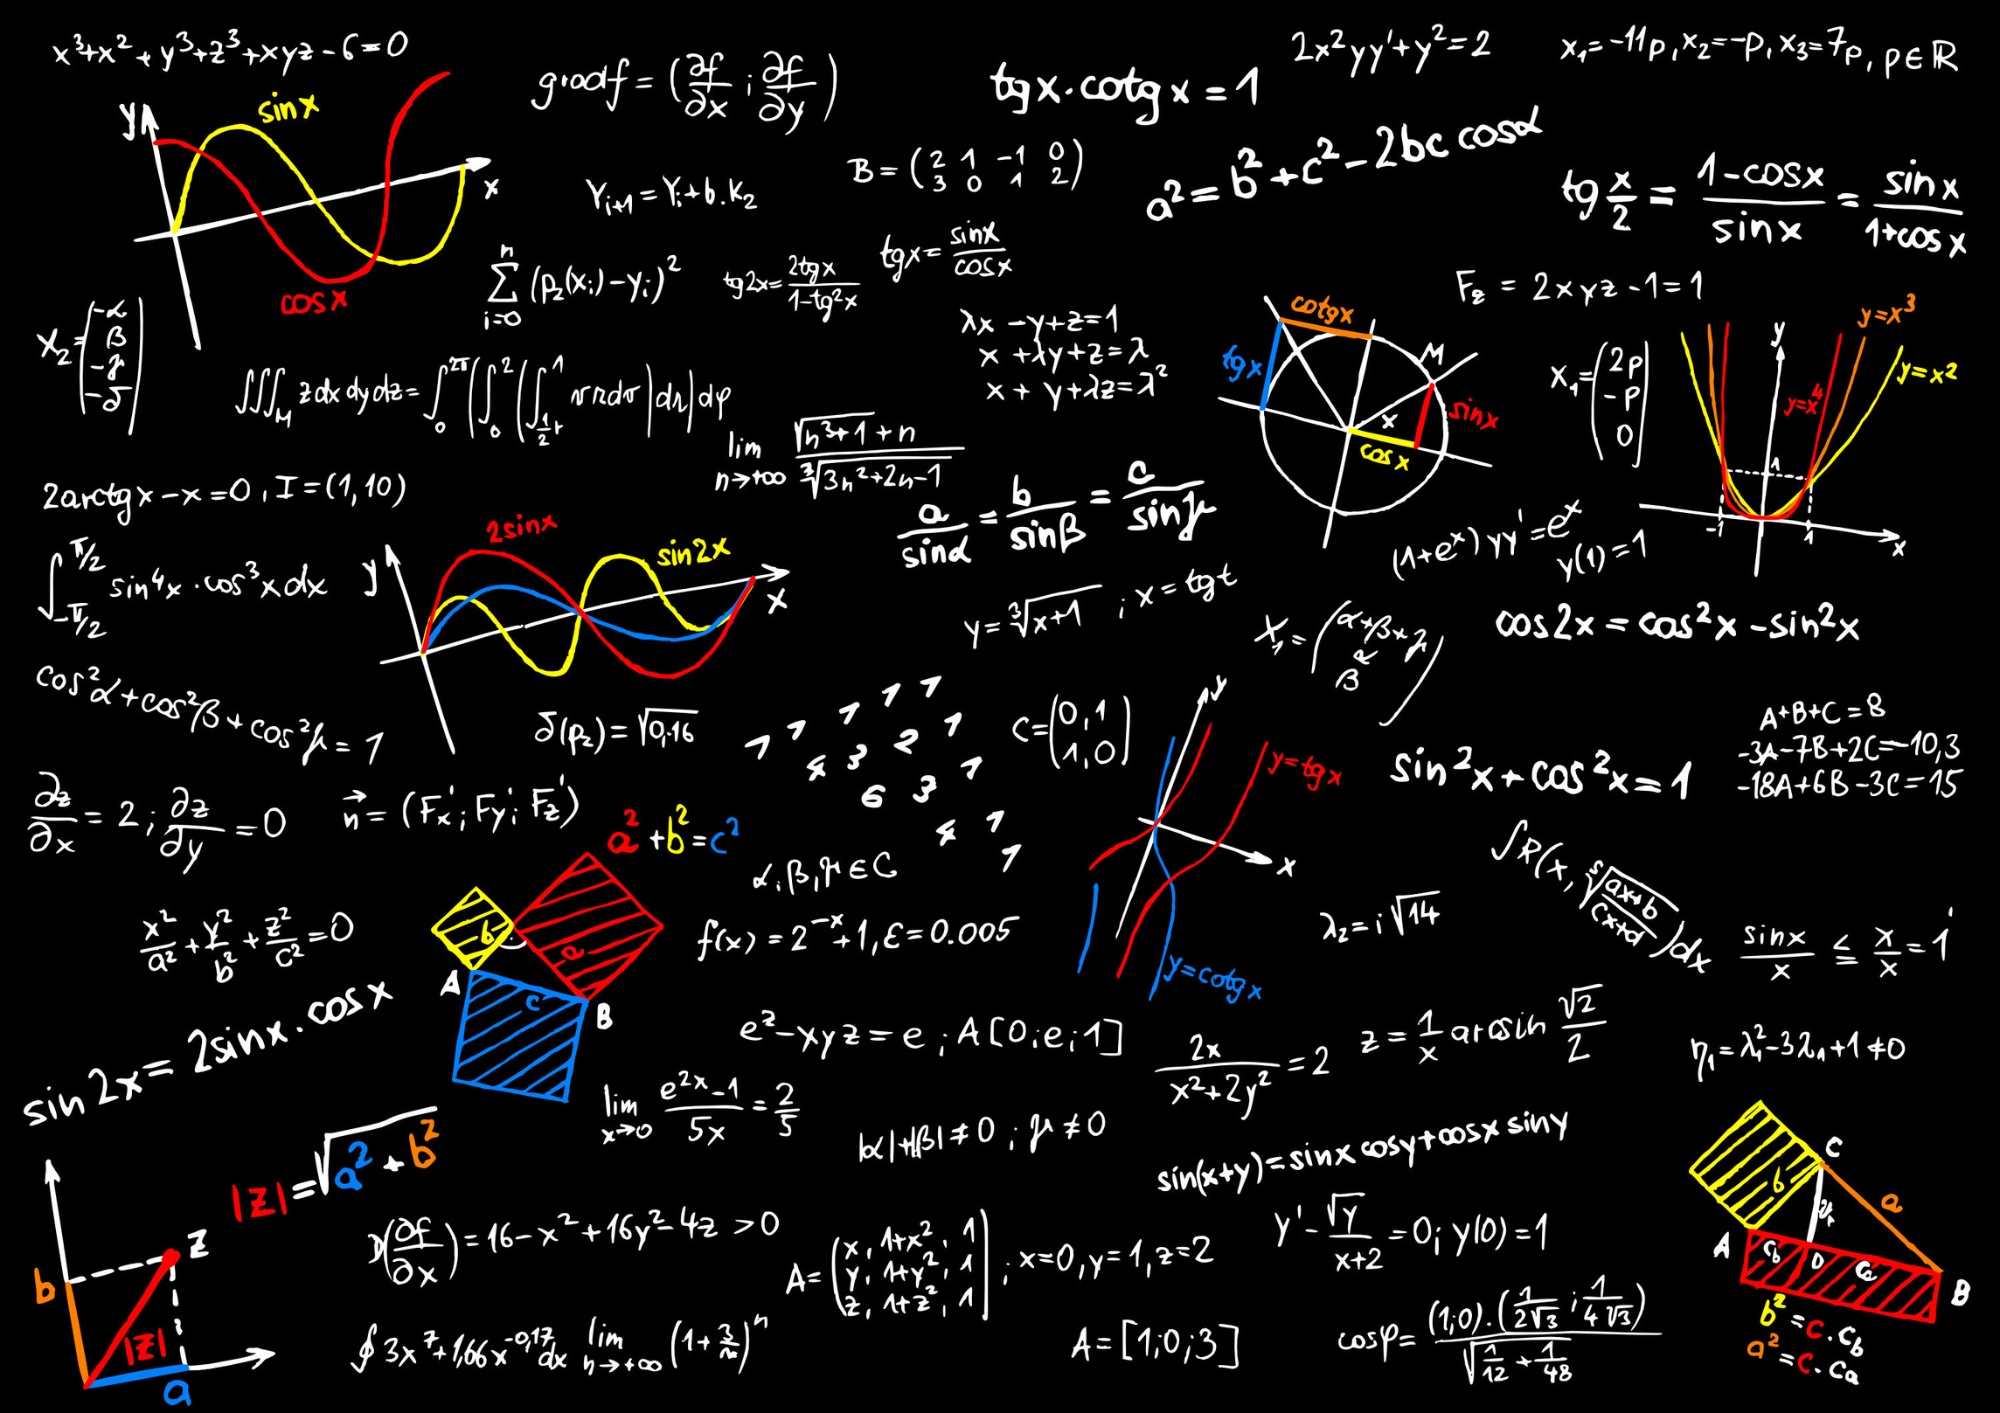 x³+x²+y³+z³+xyz-6=0
gradf = (∂f/∂x ; ∂f/∂y)
tgx·cotgx = 1
2x²yy'+y²=2
x₁=-11p, x₂=-p, x₃=7p, p∈ℝ
y
sinx
x
cosx
Y_{i+1}=Y_i+b.K₂
B = (2 1 -1 0
3 0 1 2)
a²=b²+c²-2bc cosα
tg x/2 = (1-cosx)/sinx = sinx/(1+cosx)
∑_{i=0}^{n} (p₂(x_i)-y_i)²
tg2x = 2tgx/(1-tg²x)
tgx = sinx/cosx
F₂ = 2xyz-1=1
X₂=(-α
β
-γ
-δ)
∭_M z dx dy dz = ∫₀^{2π}(∫₀²(∫_{½r}^{1} v r dv)dr)dφ
λx -y+z=1
x +λy+z=λ
x + y+λz=λ²
cotgx
tgx
M
sinx
x
cosx
X₁=(2p
-p
0)
y
y=x³
y=x²
y=x⁴
1
-1
1
x
lim_{n→+∞} (√(n³+1)+n)/∛(3n²+2n-1)
2arctgx-x=0, I=(1,10)
a/sinα = b/sinβ = c/sinγ
(1+e^x)yy'=e^x
y(1)=1
∫_{-π/2}^{π/2} sin⁴x·cos³x dx
y
2sinx
sin2x
x
y=∛(x+1) ; x=tgt
X₁=(α+β+γ
α
β)
cos2x=cos²x-sin²x
cos²α+cos²β+cos²γ=1
δ(p₂)=√0,16
1 1 1 1 1
4 3 2 1
6 3 1
4 1
1
C=(0,1
1,0)
y
y=tgx
x
y=cotgx
sin²x+cos²x=1
A+B+C=8
-3A-7B+2C=-10,3
-18A+6B-3C=15
∂z/∂x = 2 ; ∂z/∂y = 0
n⃗ = (Fx'; Fy'; Fz')
a²+b²=c²
b
a
A
c
B
α,β,γ∈C
∫R(x, ⁵√((ax+b)/(cx+d)))dx
x²/a²+y²/b²+z²/c²=0
f(x)=2^{-x}+1, ε=0.005
λ₂=i√14
sinx/x ≤ x/x = 1
sin2x=2sinx.cosx
e^z-xyz=e ; A[0;e;1]
2x/(x²+2y²)=2
z=1/x arcsin √2/2
η₁=λ₁²-3λ₁+1≠0
lim_{x→0} (e^{2x}-1)/5x = 2/5
|α|+|β|≠0 ; γ≠0
sin(x+y)=sinx cosy+cosx siny
|z|=√(a²+b²)
b
z
|z|
a
D(∂f/∂x)=16-x²+16y²-4z>0
A=(x, 1+x², 1
y, 1+y², 1
z, 1+z², 1) ; x=0, y=1, z=2
y'-√y/(x+2)=0; y(0)=1
C
b
a
A
c_b
D
c_a
B
b²=c.c_b
a²=c.c_a
∮3x⁷+1,66x^{-0,17}dx
lim_{n→+∞} (1+3/n)^n
A=[1;0;3]
cosφ = (1;0).(1/(2√3);1/(4√3))/√(1/12+1/48)